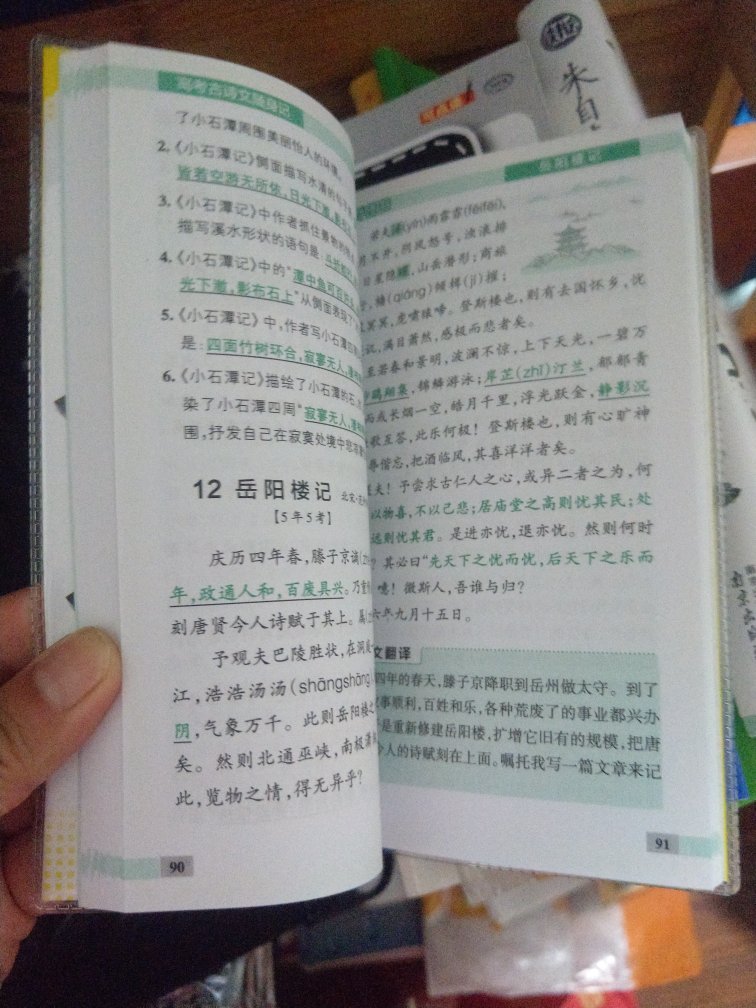 高考古诗文随身记
了小石潭周围美丽怡人的环境。
2.《小石潭记》侧面描写水清的句子
皆若空游无所依,日光下澈,影布
3.《小石潭记》中作者抓住景物的
描写溪水形状的语句是:斗折蛇行
4.《小石潭记》中的“潭中鱼可百许头
光下澈,影布石上”从侧面表现了
5.《小石潭记》中,作者写小石潭四周
是:四面竹树环合,寂寥无人,凄神
6.《小石潭记》描绘了小石潭的石、
染了小石潭四周“寂寥无人,凄神
围,抒发自己在寂寞处境中悲凉
12 岳阳楼记 北宋·范
【5年5考】
庆历四年春,滕子京谪
年,政通人和,百废具兴。乃重
刻唐贤今人诗赋于其上。属
予观夫巴陵胜状,在洞庭
江,浩浩汤汤(shāngshāng)
阴,气象万千。此则岳阳楼之
矣。然则北通巫峡,南极潇
此,览物之情,得无异乎?
90
岳阳楼记
若夫淫(yín)雨霏霏(fēifēi),
不开,阴风怒号,浊浪排
日星隐曜,山岳潜形;商旅
,樯(qiáng)倾楫(jí)摧;
冥冥,虎啸猿啼。登斯楼也,则有去国怀乡,忧
讥,满目萧然,感极而悲者矣。
至若春和景明,波澜不惊,上下天光,一碧万
鸥翔集,锦鳞游泳;岸芷(zhǐ)汀兰,郁郁青
而或长烟一空,皓月千里,浮光跃金,静影沉
歌互答,此乐何极!登斯楼也,则有心旷神
辱偕忘,把酒临风,其喜洋洋者矣。
嗟夫!予尝求古仁人之心,或异二者之为,何
以物喜,不以己悲;居庙堂之高则忧其民;处
远则忧其君。是进亦忧,退亦忧。然则何时
?其必曰“先天下之忧而忧,后天下之乐而
噫!微斯人,吾谁与归?
六年九月十五日。
文翻译
四年的春天,滕子京降职到岳州做太守。到了
事顺利,百姓和乐,各种荒废了的事业都兴办
是重新修建岳阳楼,扩增它旧有的规模,把唐
今人的诗赋刻在上面。嘱托我写一篇文章来记
91
朱自